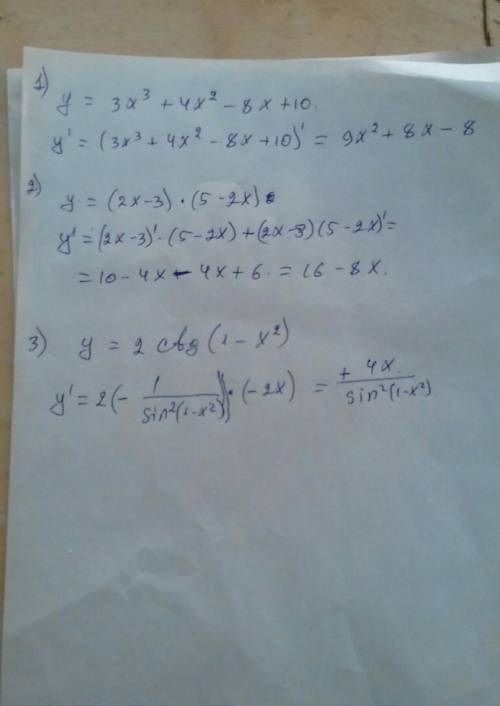 1)
y = 3x³ + 4x² - 8x + 10.
y' = (3x³ + 4x² - 8x + 10)' = 9x² + 8x - 8
2)
y = (2x-3) · (5-2x)
y' = (2x-3)' · (5-2x) + (2x-3)(5-2x)' =
= 10 - 4x - 4x + 6 = 16 - 8x.
3) y = 2 ctg (1 - x²)
y' = 2(- 1/sin²(1-x²)) · (-2x) = + 4x/sin²(1-x²).